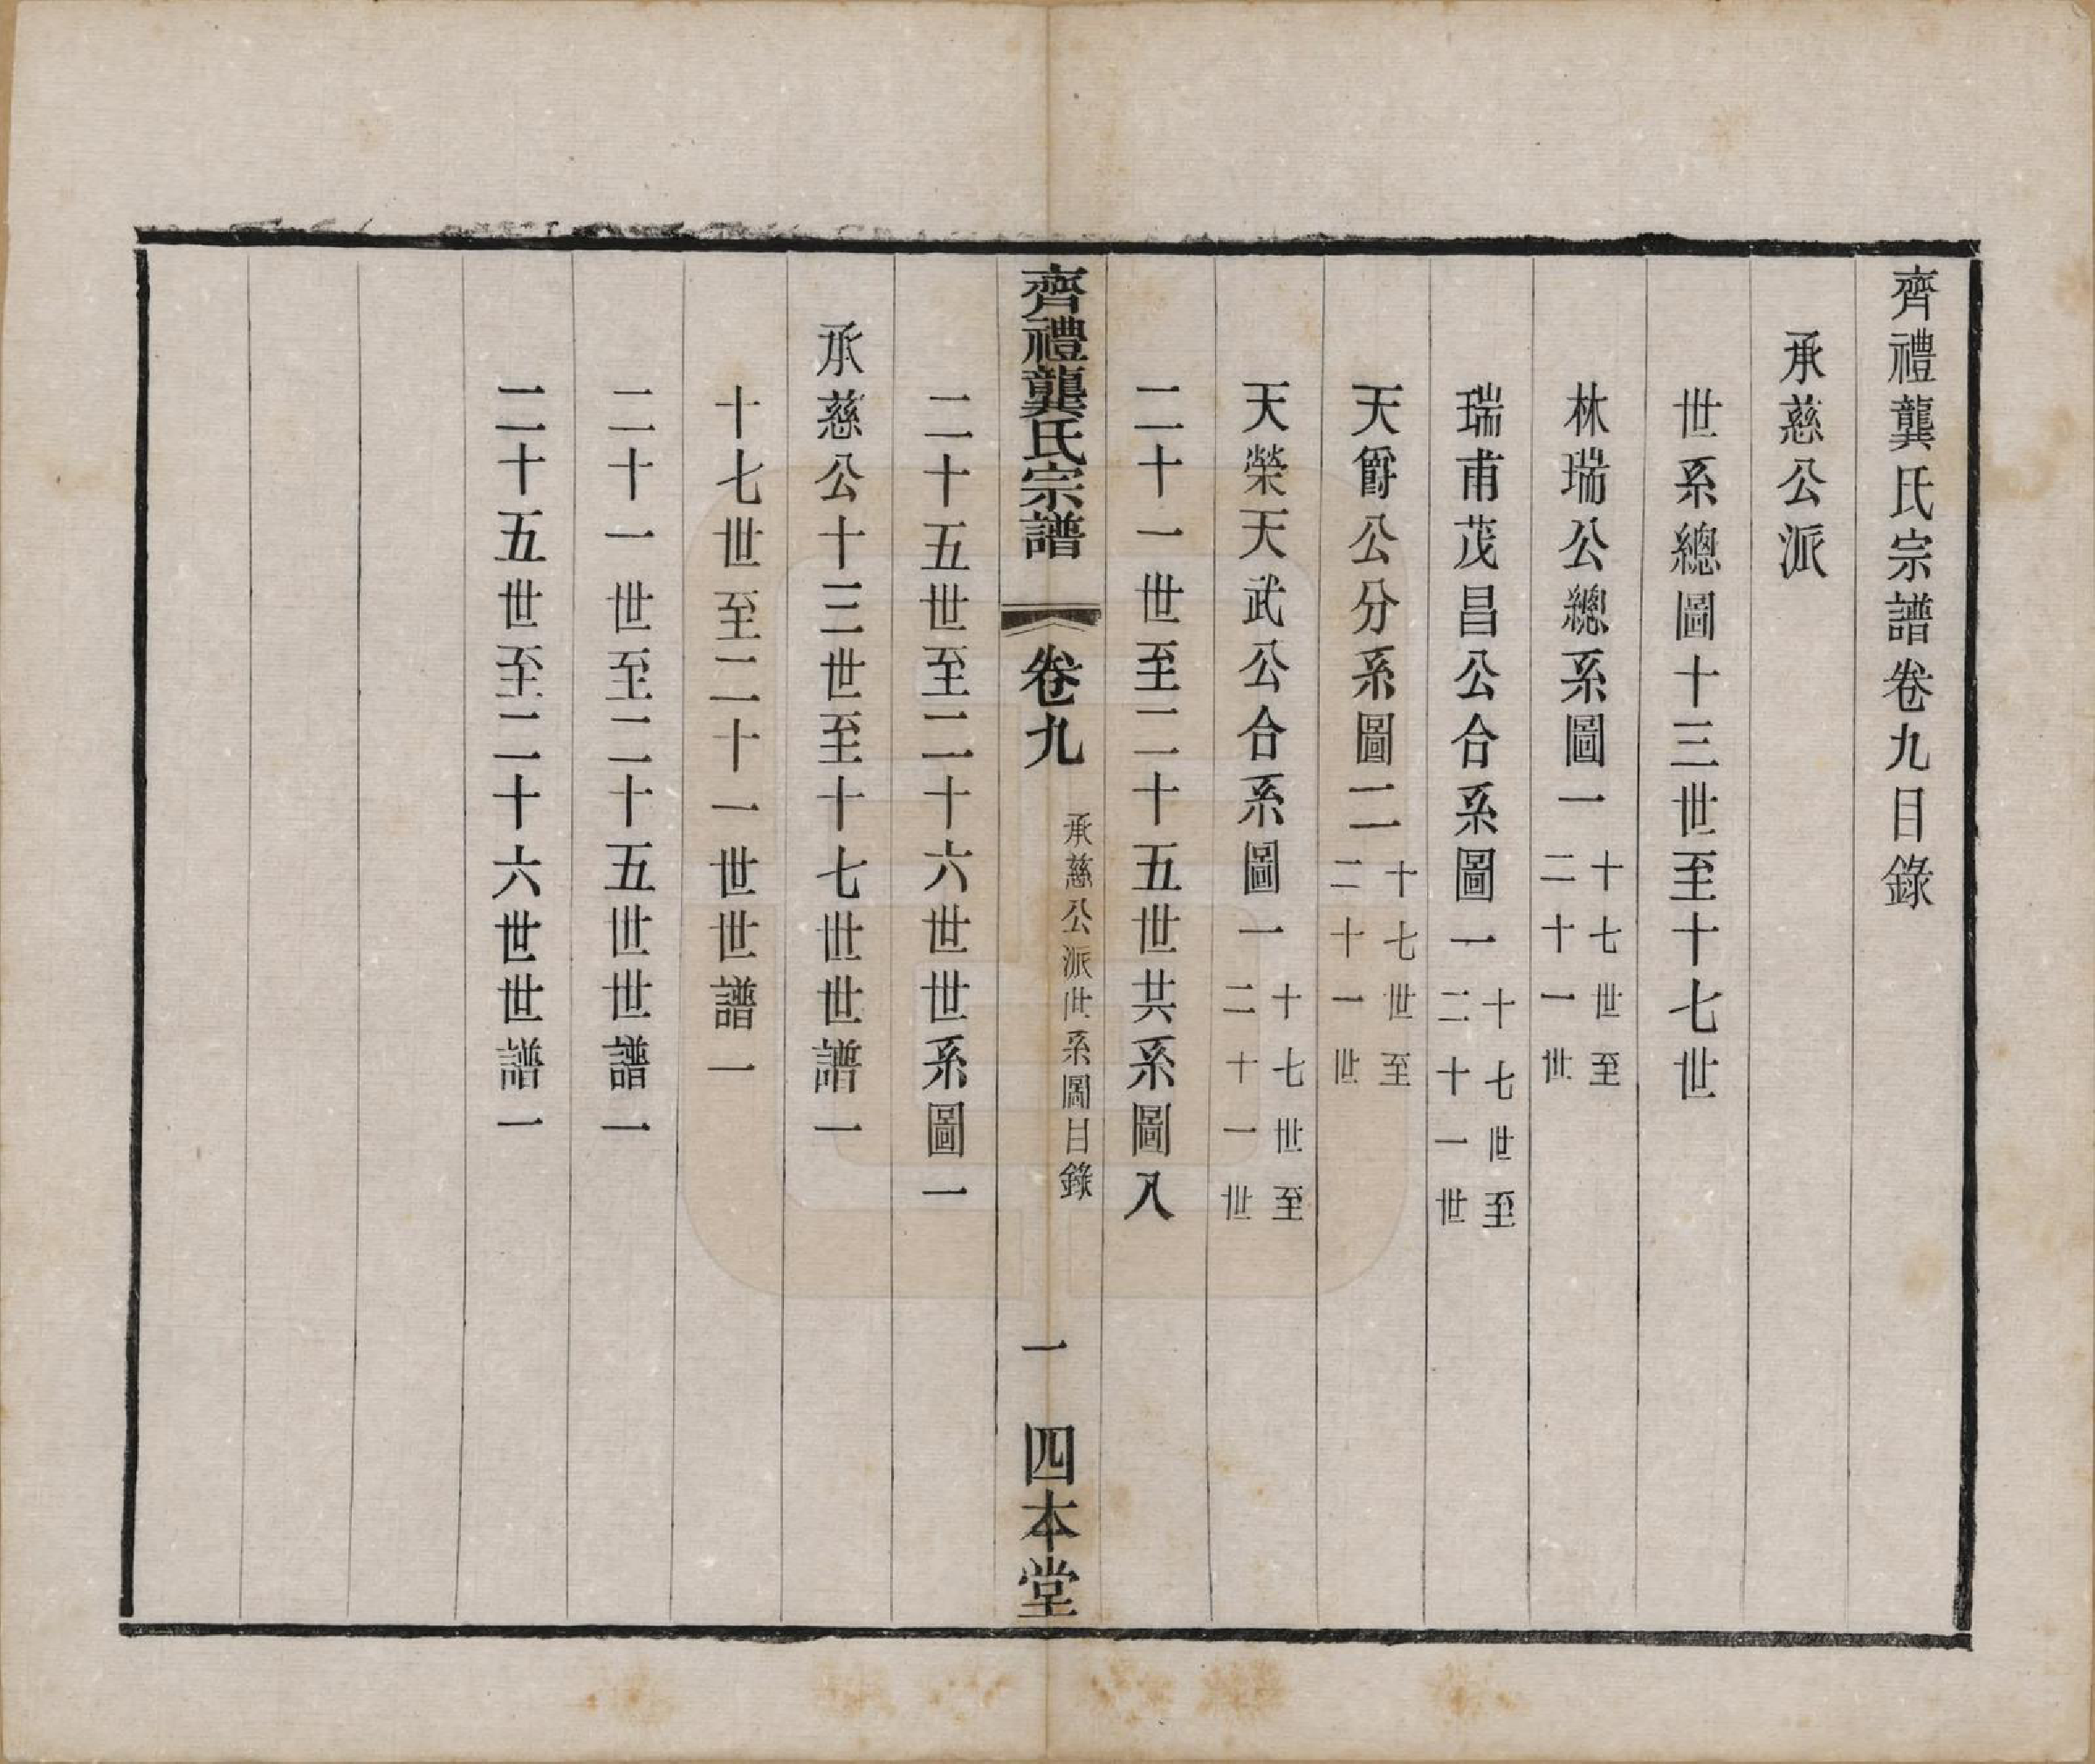 齊禮龔氏宗譜卷九目錄
承慈公派
世系總圖十三世至十七世
林瑞公總系圖一十七世至二十一世
瑞甫茂昌公合系圖一十七世至二十一世
天爵公分系圖二十七世至二十一世
天榮天武公合系圖一十七世至二十一世
二十一世至二十五世共系圖八
齊禮龔氏宗譜 卷九 承慈公派世系圖目錄 一 四本堂
二十五世至二十六世世系圖一
承慈公十三世至十七世世譜一
十七世至二十一世世譜一
二十一世至二十五世世譜一
二十五世至二十六世世譜一